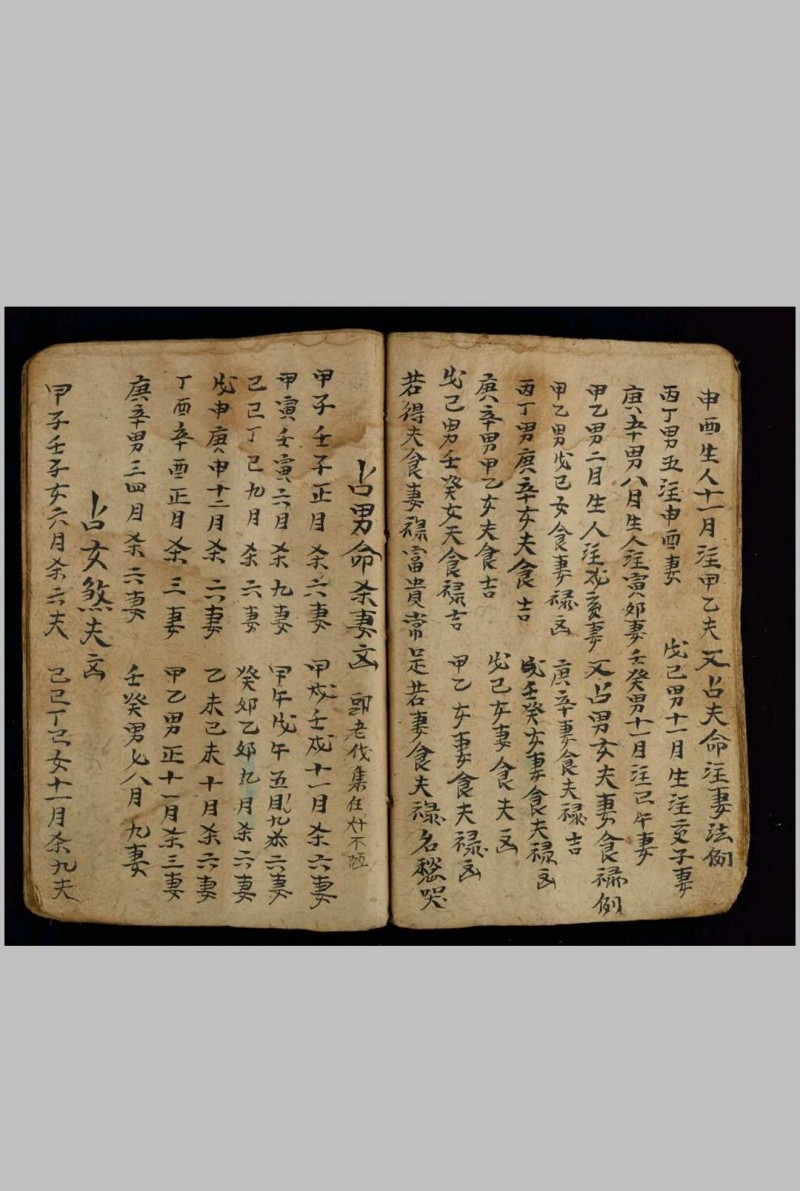 申酉生人十一月注甲乙夫 又占夫命注妻法例
丙丁男五注申酉妻 戊己男十一月生注亥子妻
庚辛男八月生人注寅卯妻 壬癸男十一月注巳午妻
甲乙男二月生人注戌亥妻 又占男女夫妻食禄例
甲乙男戊己女食妻禄凶 庚辛妻食夫禄吉
丙丁男庚辛女夫食吉 戊壬癸女妻食夫禄凶
庚辛男甲乙女夫食吉 戊己女妻食夫凶
戊己男壬癸女夫食禄吉 甲乙女妻食夫禄凶
若得夫食妻禄富貴常足若妻食夫禄名愁哭
占男命杀妻凶
甲子壬子正月杀六妻 甲戌壬戌十一月杀六妻
甲寅壬寅六月杀九妻 甲午戊午五月九杀六妻
己巳丁巳九月杀六妻 癸卯乙卯九月杀六妻
戊申庚申十二月杀六妻 乙未己未十月杀六妻
丁酉辛酉正月杀三妻 甲乙男正十一月杀三妻
庚辛男三四月杀六妻 壬癸男七八月九妻
占女煞夫凶
甲子壬子女六月杀六夫 己巳丁巳女十一月杀九夫